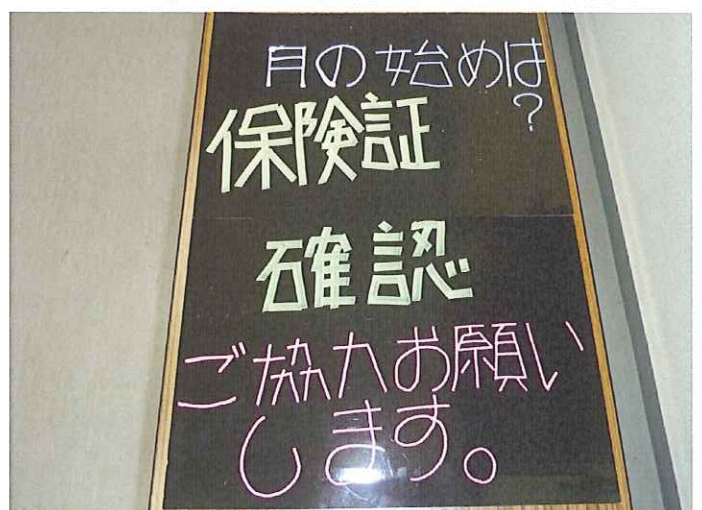 月の始めは
?
保険証
確認
ご協力お願い
します。